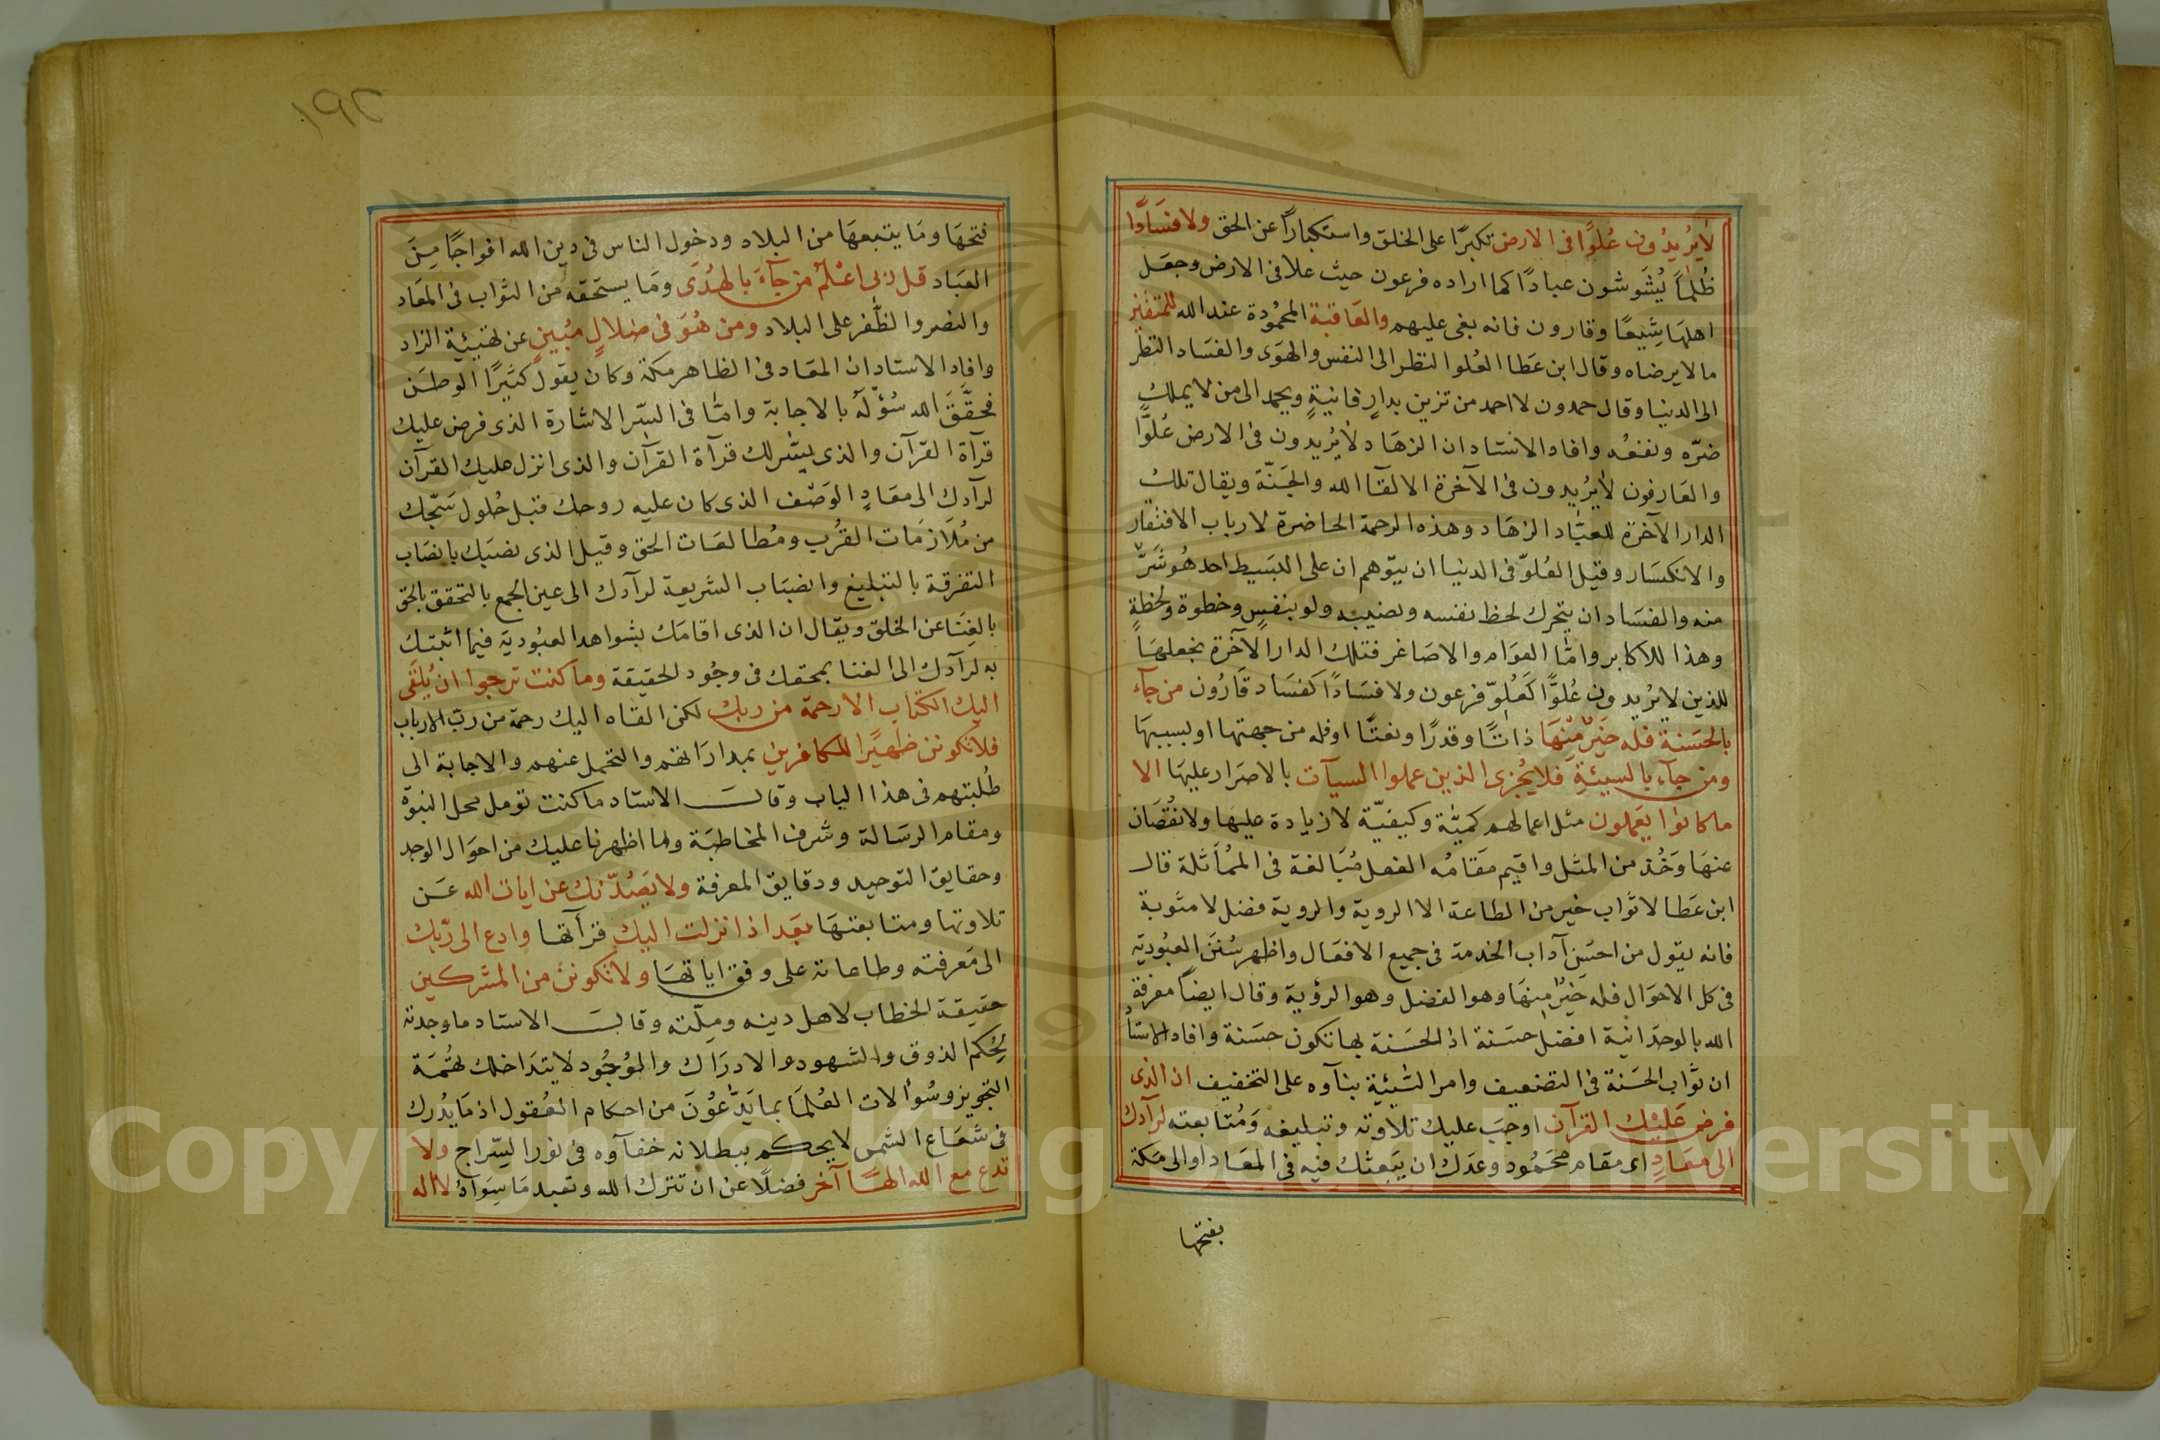 لا يريدون علوًا فى الارض تكبرًا على الخلق واستكبارًا عن الحق ولا فسَادًا
ظُلمًا يُشَوشون عبادًا كما اراده فرعون حيث علا فى الارض وجعَل
اهلهَا شِيعًا وقارون فانه بغى عليهم والعَاقبة المحمُودة عند الله للمتقين
ما لا يرضاه وقال ابن عَطا العُلو النظر الى النفس والهوَى والفسَاد النظر
الى الدنيا وقال حمدون لا احمد من تزين بدارٍ فانيةٍ ويحمد الى من لا يملك
ضرّه ونفعُه وافاد الاستاد ان الزهَاد لا يُريدون فى الارض عُلوًّا
والعَارفون لا يُريدون فى الآخرة الا لقآ الله والجَنّة ويقال تلك
الدار الآخرة للعبَّاد الزهَاد وهذه الرحمة الحَاضرة لارباب الافتقار
والانكسَار وقيل العُلوّ فى الدنيا ان يتوّهم ان على البسَيط احد هُو شَرٌّ
منه والفسَاد ان يتحرك لحظ نفسه ونصيبه ولو بنفسٍ وخطوة ولحظةٍ
وهذا للاكابر وامَّا العوَام والاصَاغر فتلك الدار الآخرة نجعلهَا
للذين لا يُريدون عُلوًّا كعُلوّ فرعون ولا فسَادًا كفسَاد قارُون من جآء
بالحسَنة فله خَيرٌ مِّنْهَا ذاتًا وقدرًا ونعتًا او فله من جهتها او بسببهَا
ومن جآء بالسيئةِ فلا يُجزى الذين عملوا السيآت بالاصرَار عليهَا الا
ما كانوا يعَملون مثل اعمالهم كميَّة وكيفيّة لا زيادة عليهَا ولا نقُصَان
عنهَا وَحُذف من المثل واقيم مقَامُه الفعل مُبَالغة فى المُمَاثلة قال
ابن عَطا لا ثواب خير من الطاعة الا الروية والروية فضل لا مثوبة
فانه يقول من احسَن آداب الخدمة فى جميع الافعَال واظهر سُننَ العبُودية
فى كل الاحوَال فله خَيرٌ منهَا وهو الفضل وهو الرؤية وقال ايضاً معرفة
الله بالوحدَانية افضل حسَنة اذ الحسَنة بها تكون حسَنة وافاد الاستاد
ان ثوَاب الحسَنة فى التضعيف وامر السَّيئة بنآوه على التخفيف ان الذى
فرض عَليْك القرآن اوجبَ عليك تلاوته وتبليغه ومُتابعته لرآدك
الى معَادٍ اى مقام محَمُود وعدَك ان يَبعثك فيه فى المعَاد او الى مَكة
بفتحها
١٩٢
فتحهَا ومَا يتبعهَا من البلاد ودخول الناس فى دين الله افواجًا مِنَ
العبَاد قل ربى اعْلمُ من جآءَ بالهُدَى ومَا يستحقه من الثواب فى المعَاد
والنصر والظَّفر على البلاد ومن هُوَ فى ضلالٍ مبُينٍ عن تهيئة الزاد
وافاد الاستاد ان المعَاد فى الظاهر مكة وكان يقول كثيرًا الوطَن
فحقَّقَ الله سُؤلَهُ بالاجابة وامَّا فى السّر الاشارة الذى فرض عليك
قرآة القرآن والذى يسَّر لك قرآة القرآن والذى انزل عليك القرآن
لرآدك الى معَادٍ الوَصْف الذى كان عليه روحك قبل حُلول شَبَحك
من مُلازمَات القُرب ومُطالعَات الحق وقيل الذى نصَبَك باوصَاف
التفرقة بالتبليغ وانصبَاب الشريعة لرآدك الى عين الجمع بالتحقق بالحق
بالفِنَا عن الخلق ويقال ان الذى اقامَك بشواهد العبُودية فيما اثبتك
به لرآدك الى الفنا بمحقك فى وجُود لحقيقة وما كنت ترجوا ان يُلقَى
اليك الكتاب الا رحمة من ربك لكن القاه اليك رحمة من ربّ الارباب
فلا تكونن ظهيًرا للكافرين بمدارَاتهم والتحمل عنهم والاجابة الى
طُلبتهم فى هذا الباب وقالـــ الاستاد ما كنت تومل محل النبوّة
ومقام الرسَالة وشرف المخاطبَة ولما اظهرنا عليك من احوَال الوجد
وحقايق التوحيد ودقايق المعرفة ولا يَصُدّنك عن ايات الله عَن
تلاوتها ومتابعتهَا بَعد اذ انزلت اليك قرآتها وادع الى ربّك
الى مَعرفته وطاعاته على وفق اياتهَا ولا تكوننّ من المشركين
حقيقة الخطاب لاهل دينه وملّته وقالـــ الاستاد ما وجدته
بحُكم الذوق والشهود والادرَاك والموُجُود لا يتدَاخلك تهُمَة
التجويز وسُوالات العُلمَا بما يَدَّعُوْنَ من احكام العُقول اذ مَا يدُرك
فى شعَاع الشمس لا يحكم ببطلانه خفآوه فى نور السّراج ولا
تدع مع الله الهًا آخر فضلًا عن ان تترك الله وتعبد مَا سِوَاهُ لا اله
Copyright © King Saud University